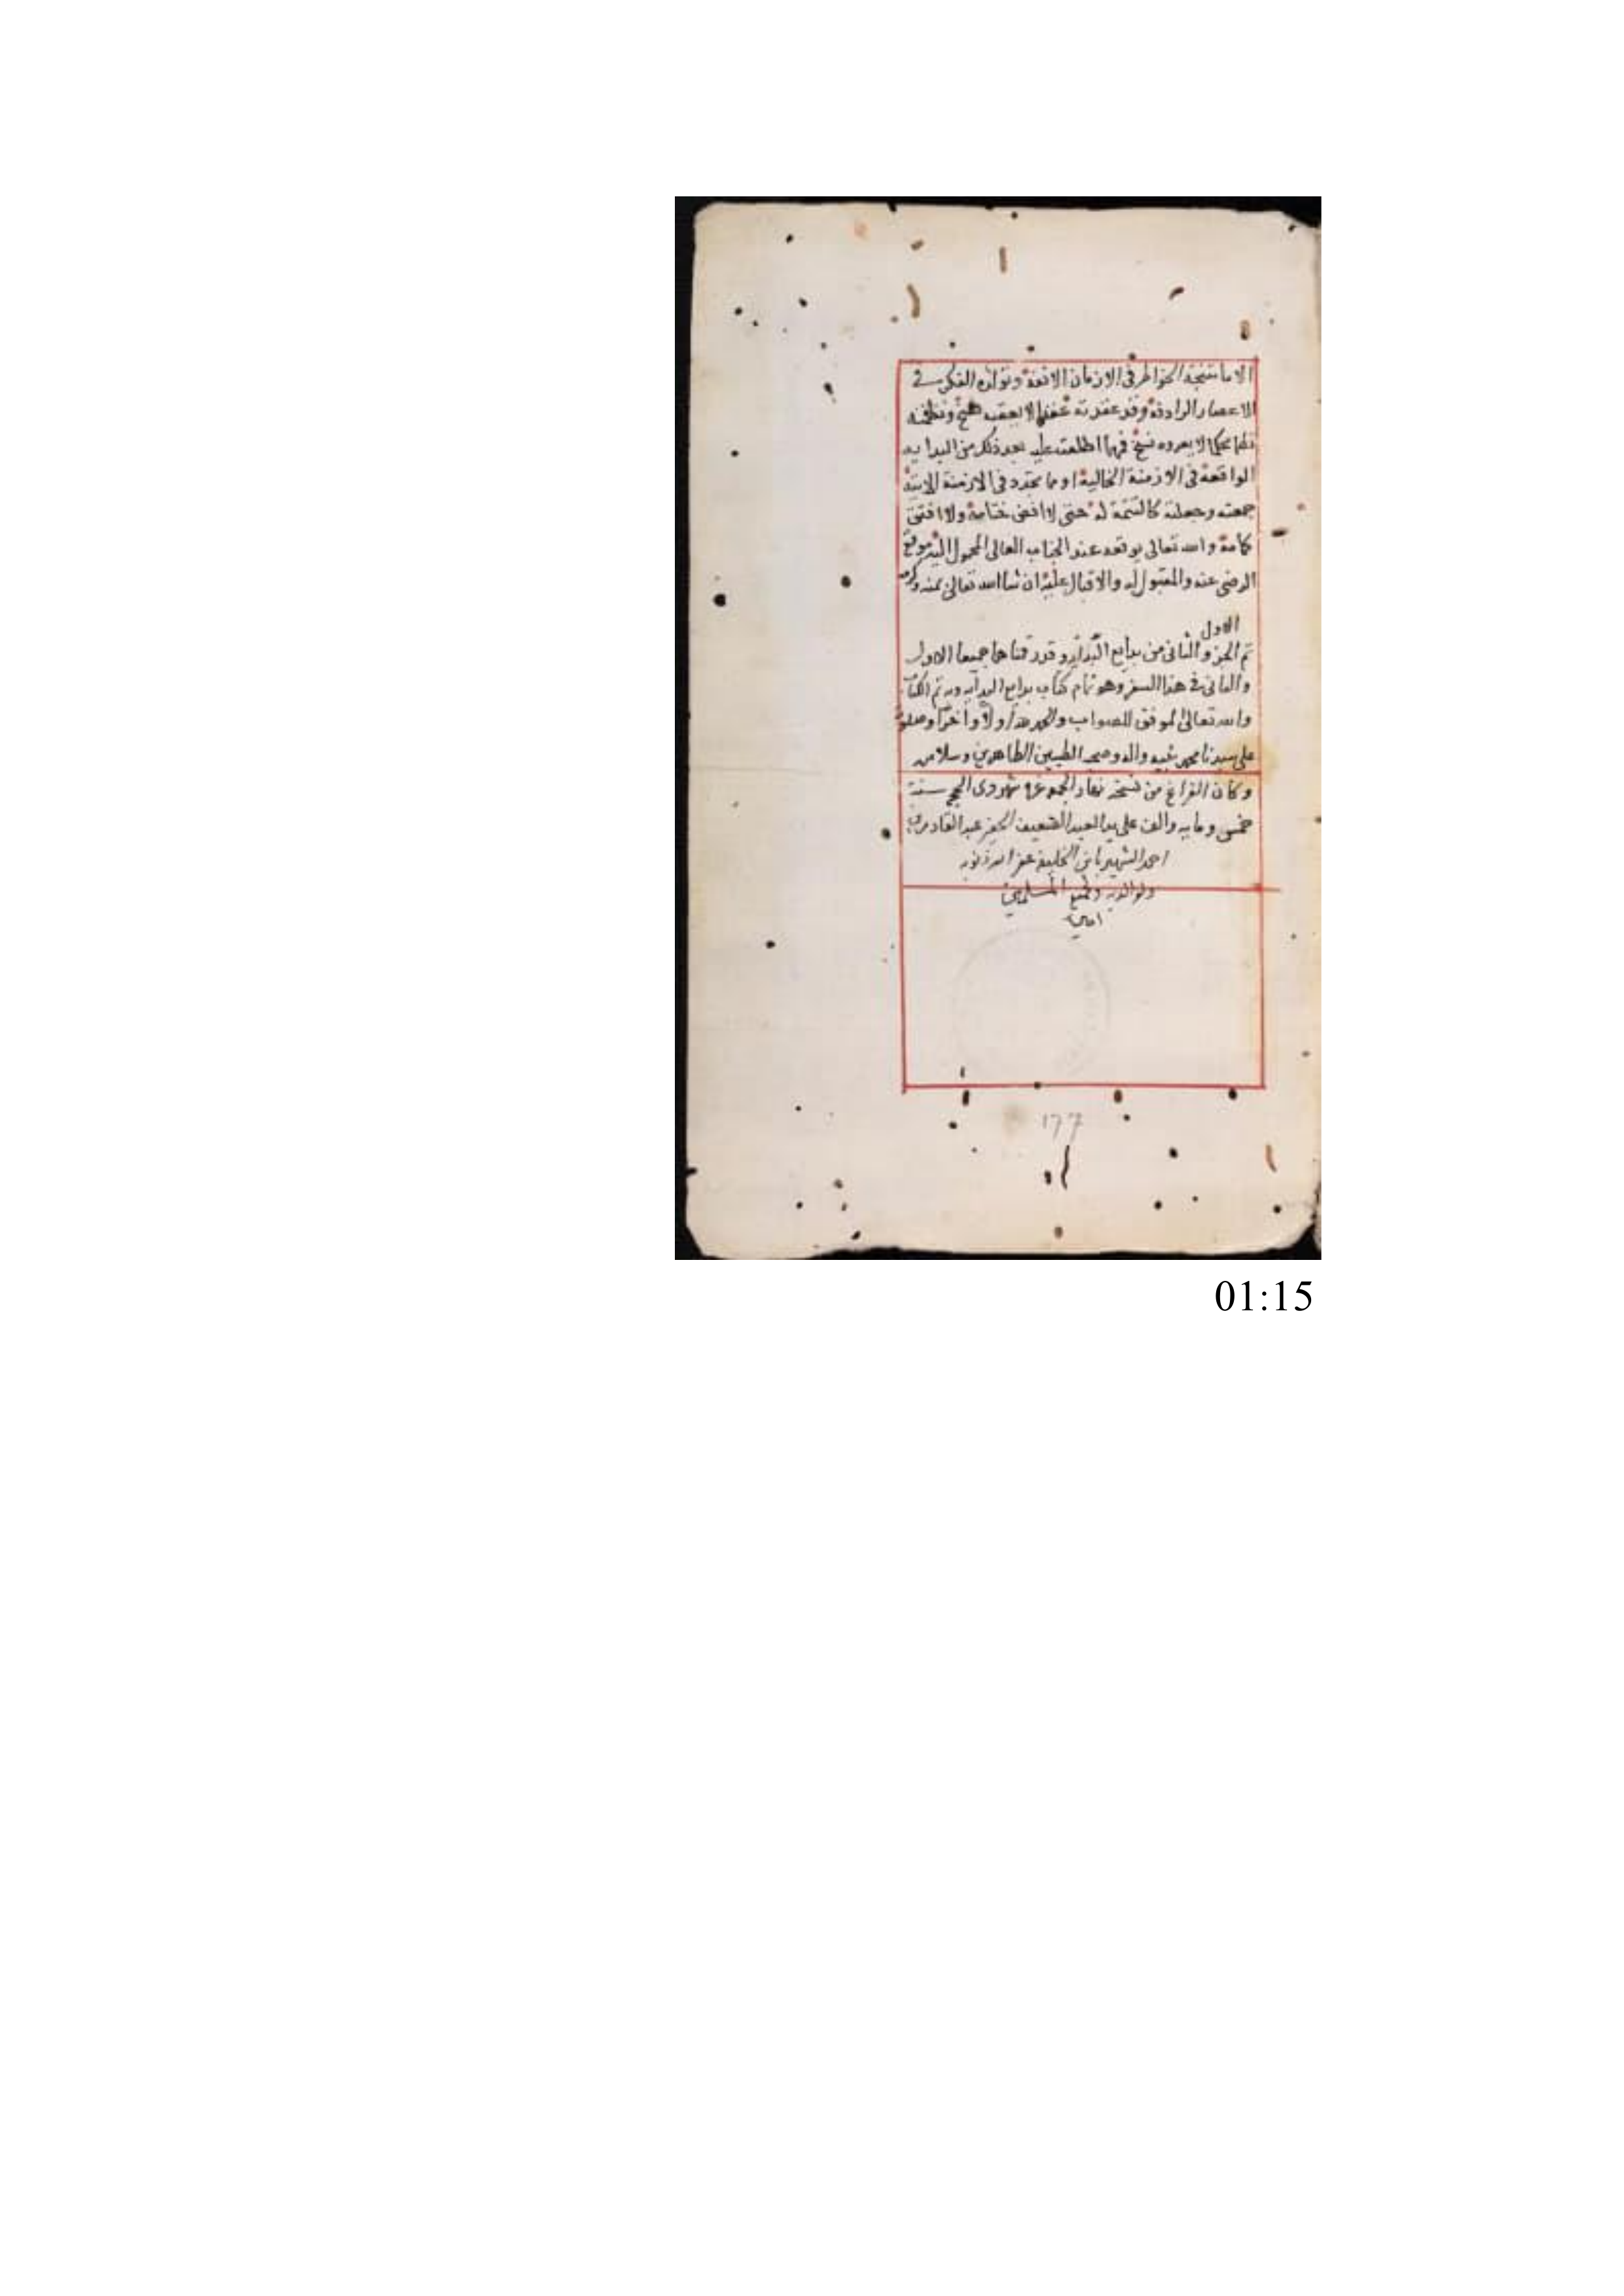 الا ما تنتجه الخواطر في الازمان الانفة وتولده الفكر في
الاعصار الرادفة وقد عقدته عقدا لا يعقبه فسخ ونظمته
نظما محكما لا يعروه نسخ فمهما اطلعت عليه بعد ذلك من البدايه
الواقعة في الازمنة الخالية او مما يتجدد في الازمنة الاتية
جمعته وجعلته كالتتمة له حتى لا افض ختامه ولا افتق
كمامه والله تعالى يوقعه عند الجناب العالى المحمول اليه موقع
الرضى عنه والقبول له والاقبال عليه ان شا الله تعالى بمنه وكرمه
الاول
تم الجزو والثانى من بدايع البدايه وقد رقناهما جميعا الاول
والثانى في هذا السفر وهو تمام كتاب بدايع البدايه وبه تم الكتاب
والله تعالى الموفق للصواب والحمد لله اولا واخرا وصلوته
على سيدنا محمد نبيه واله وصحبه الطيبين الطاهرين وسلامه
وكان الفراغ من نسخه نهار الجمعه شهر ذى الحجه سنة
خمس ومايه والف على يد العبد الضعيف الحقير عبد القادر بن
احمد الشهير بابن الخليفة غفر الله ذنوبه
ولوالديه ولجميع المسلمين
امين
١٦٦
01:15